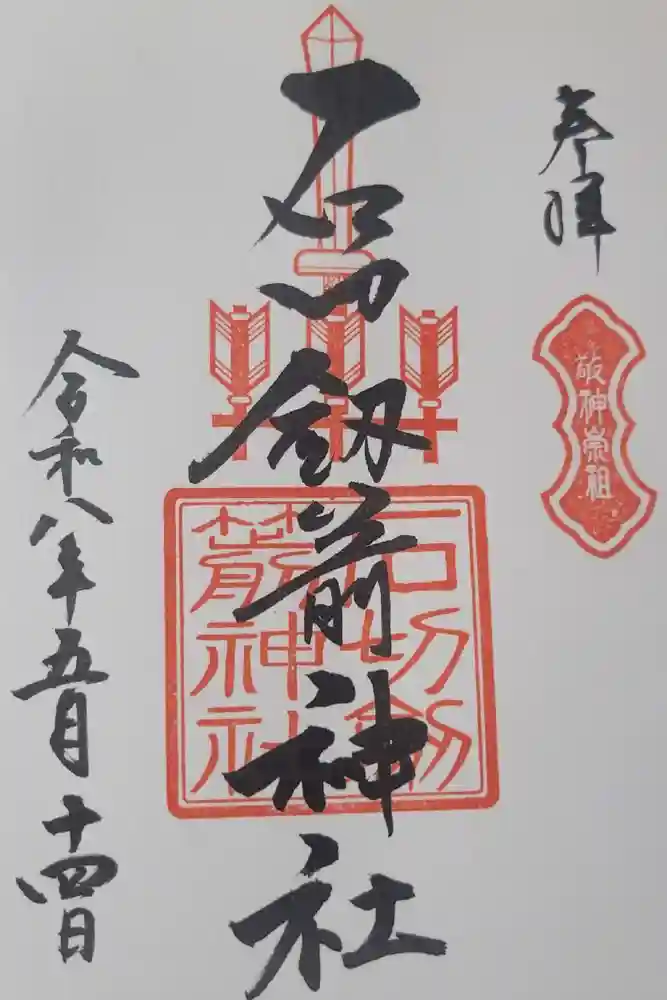 奉拝
敬神崇祖
石切劔箭神社
石切劔
箭神社
令和八年五月十四日